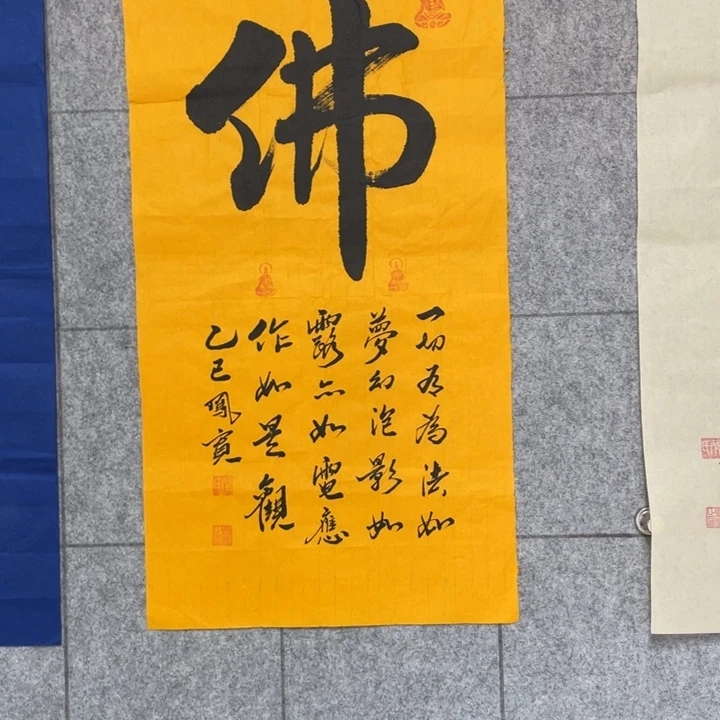 佛
一切有為法如
夢幻泡影如
露亦如電應
作如是觀
乙巳鳳寬